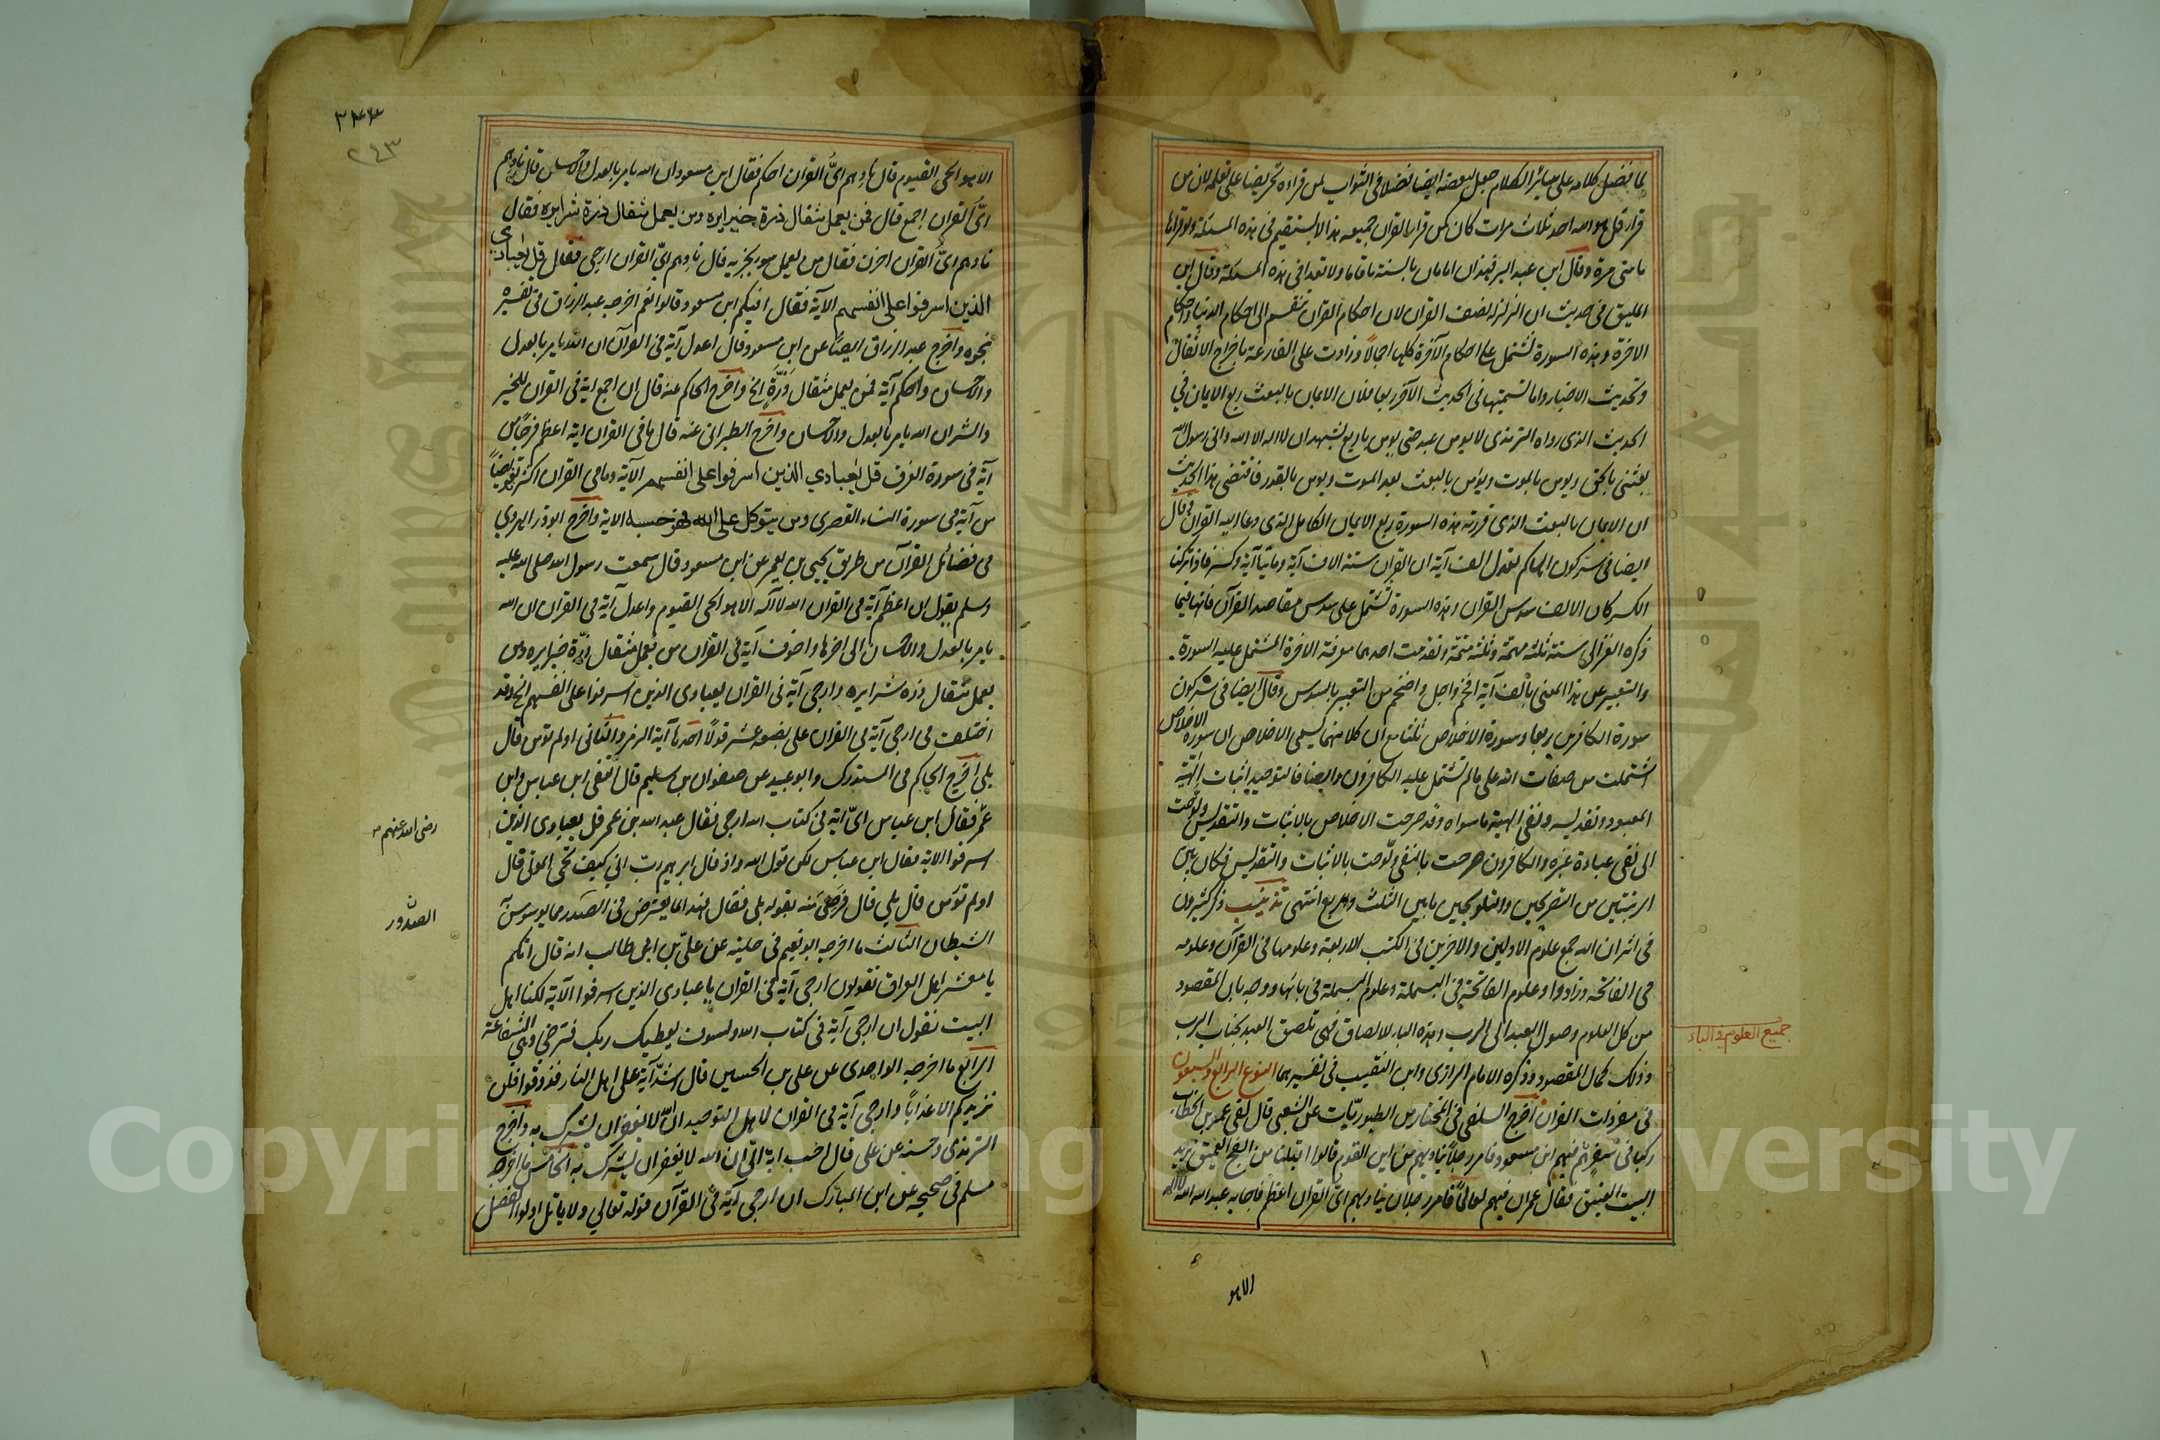 لما فضل كلامه على سائر الكلام جعل لبعضه ايضا فضلا في الثواب لمن قراءه تحريضا على تعلمه لان من
قرا قل هو الله احد ثلاث مرات كان كمن قرا القران جميعه هذا لا يستقيم في هذه المسئلة ولو قراها
مايتي مرة وقال ابن عبد البر فهذان امامان بالسنة ما قاما ولا قعدا في هذه المسئلة وقال ابن
الميلق في حديث ان الزلزلة نصف القران لان احكام القران تنقسم الى احكام الدنيا واحكام
الاخرة وهذه السورة تشتمل على احكام الآخرة كلها اجمالا وزادت على القارعة باخراج الاثقال
وتحديث الاخبار واما تسميتها في الحديث الآخر ربعا فلان الايمان بالبعث ربع الايمان في
الحديث الذي رواه الترمذي لا يومن عبد حتى يومن باربع يشهد ان لا اله الا الله واني رسول الله
بعثني بالحق ويومن بالموت ويؤمن بالبعث بعد الموت ويومن بالقدر فاقتضى هذا الحديث
ان الايمان بالبعث الذي قررته هذه السورة ربع الايمان الكامل الذي دعا اليه القران وقال
ايضا في سر كون الهاكم تعدل الف آية ان القران ستة الاف آية ومايتا آية وكسر فاذا تركنا
الكسر كان الالف سدس القران وهذه السورة تشتمل على سدس مقاصد القرآن فانها فيما
ذكره الغزالي ستة ثلثة مهمة وثلثة متمة وتقدمت احدها معرفة الاخرة المشتمل عليه السورة
والتعبير عن هذا المعنى بالف آية افخم واجل واضخم من التعبير بالسدس وقال ايضا في سر كون
سورة الكافرين ربعا وسورة الاخلاص ثلثا مع ان كلا منهما يسمى الاخلاص ان سورة الاخلاص
اشتملت من صفات الله على ما لم تشتمل عليه الكافرون وايضا فالتوحيد اثبات الهية
المعبود وتقديسه ونفي الهية ما سواه وقد صرحت الاخلاص بالاثبات والتقديس ولوحت
الى نفي عبادة غيره والكافرون صرحت بالنفي ولوحت بالاثبات والتقديس فكان بين
الرتبتين من التصريحين والتلويحين ما بين الثلث والربع انتهى تذنيب ذكر كثيرون
في اثر ان الله جمع علوم الاولين والاخرين في الكتب الاربعة وعلومها في القرآن وعلومه
في الفاتحة وزادوا وعلوم الفاتحة في البسملة وعلوم البسملة في بائها ووجه بان المقصود
من كل العلوم وصول العبد الى الرب وهذه الباء للالصاق فهي تلصق العبد بجناب الرب
وذلك كمال المقصود وذكره الامام الرازي وابن النقيب في تفسيرهما النوع الرابع والسبعون
في مفردات القران اخرج السلفي في المختار من الطيوريات عن الشعبي قال لقي عمر بن الخطاب
ركبا في سفر فيهم ابن مسعود فامر رجلا يناديهم من اين القوم قالوا اقبلنا من الفج العميق نريد
البيت العتيق فقال عمر ان فيهم لعالما فامر رجلا ان يناديهم اي القران اعظم فاجابه عبد الله الله لا اله
جميع العلوم في الباء
الا هو
٢٤٣
٢٤٣
الا هو الحي القيوم قال نادهم اي القران احكم فقال ابن مسعود ان الله يامر بالعدل والاحسان قال نادهم
اي القران اجمع قال فمن يعمل مثقال ذرة خيرا يره ومن يعمل مثقال ذرة شرا يره فقال
نادهم اي القران احزن فقال من يعمل سوء يجز به قال نادهم اي القران ارجى فقال قل يعبادي
الذين اسرفوا على انفسهم الآية فقال افيكم ابن مسعود قالوا نعم اخرجه عبد الرزاق في تفسيره
بنحوه واخرج عبد الرزاق ايضا عن ابن مسعود قال اعدل آية في القرآن ان الله يامر بالعدل
والاحسان واحكم آية فمن يعمل مثقال ذرة الخ واخرج الحاكم عنه قال ان اجمع اية في القران للخير
والشر ان الله يامر بالعدل والاحسان واخرج الطبراني عنه قال ما في القران اية اعظم فرجا من
آية في سورة الغرف قل يعبادي الذين اسرفوا على انفسهم الآية وما في القران اكثر تفويضا
من آية في سورة النساء القصرى ومن يتوكل على الله فهو حسبه الاية واخرج ابو ذر الهروي
في فضائل القرآن من طريق يحيى بن يعمر عن ابن مسعود قال سمعت رسول الله صلى الله عليه
وسلم يقول ان اعظم آية في القران الله لا اله الا هو الحي القيوم واعدل آية في القران ان الله
يامر بالعدل والاحسان الى اخرها واخوف آية في القران من يعمل مثقال ذرة خيرا يره ومن
يعمل مثقال ذرة شرا يره وارجى آية في القران يعبادي الذين اسرفوا على انفسهم الخ وقد
اختلف في ارجى آية في القران على بضعة عشر قولا احدها آية الزمر والثاني اولم تؤمن قال
بلى اخرج الحاكم في المستدرك وابو عبيد عن صفوان بن سليم قال التقى ابن عباس وابن
عمر فقال ابن عباس اي آية في كتاب الله ارجى فقال عبد الله بن عمر قل يعبادي الذين
اسرفوا الاية فقال ابن عباس لكن قول الله واذ قال ابرهيم رب ارني كيف تحي الموتى قال
اولم تؤمن قال بلى قال فرضي منه بقوله بلى فقال فهذا لما يعترض في الصدر مما يوسوس به
الشيطان الثالث ما اخرجه ابو نعيم في حليته عن علي بن ابي طالب انه قال انكم
يا معشر اهل العراق تقولون ارجى آية في القران يا عبادي الذين اسرفوا الآية لكنا اهل
البيت نقول ان ارجى آية في كتاب الله ولسوف يعطيك ربك فترضى وهي الشفاعة
الرابع ما اخرجه الواحدي عن علي بن الحسين قال اشد آية على اهل النار فذوقوا فلن
نزيدكم الا عذابا وارجى آية في القران لاهل التوحيد ان الله لا يغفر ان يشرك به واخرج
الترمذي وحسنه عن علي قال احب اية الي ان الله لا يغفر ان يشرك به الخامس ما اخرجه
مسلم في صحيحه عن ابن المبارك ان ارجى آية في القرآن قوله تعالى ولا ياتل اولوا الفضل
رضي الله عنهم
الصدور
Copyright © King Saud University